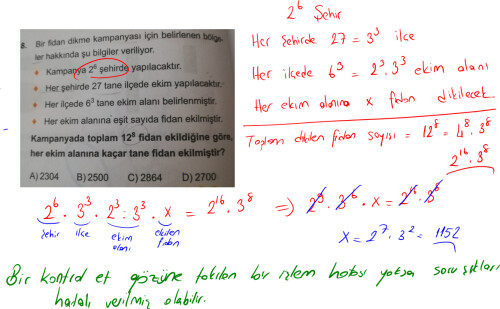 8. Bir fidan dikme kampanyası için belirlenen bölge-
ler hakkında şu bilgiler veriliyor.
• Kampanya 2⁶ şehirde yapılacaktır.
• Her şehirde 27 tane ilçede ekim yapılacaktır.
• Her ilçede 6³ tane ekim alanı belirlenmiştir.
• Her ekim alanına eşit sayıda fidan ekilmiştir.
Kampanyada toplam 12⁸ fidan ekildiğine göre,
her ekim alanına kaçar tane fidan ekilmiştir?
A) 2304 B) 2500 C) 2864 D) 2700
2⁶ Şehir
Her şehirde 27 = 3³ ilçe
Her ilçede 6³ = 2³ . 3³ ekim alanı
Her ekim alanına x fidan dikilecek
Toplam dikilen fidan sayısı = 12⁸ = 4⁸ . 3⁸
2¹⁶ . 3⁸
2⁶ . 3³ . 2³ . 3³ . x = 2¹⁶ . 3⁸ ⇒ 2⁹ . 3⁶ . x = 2¹⁶ . 3⁸
şehir ilçe ekim alanı ekilen fidan
x = 2⁷ . 3² = 1152
Bir kontrol et gözüne takılan bir işlem hatası yoksa soru şıkları
hatalı verilmiş olabilir.